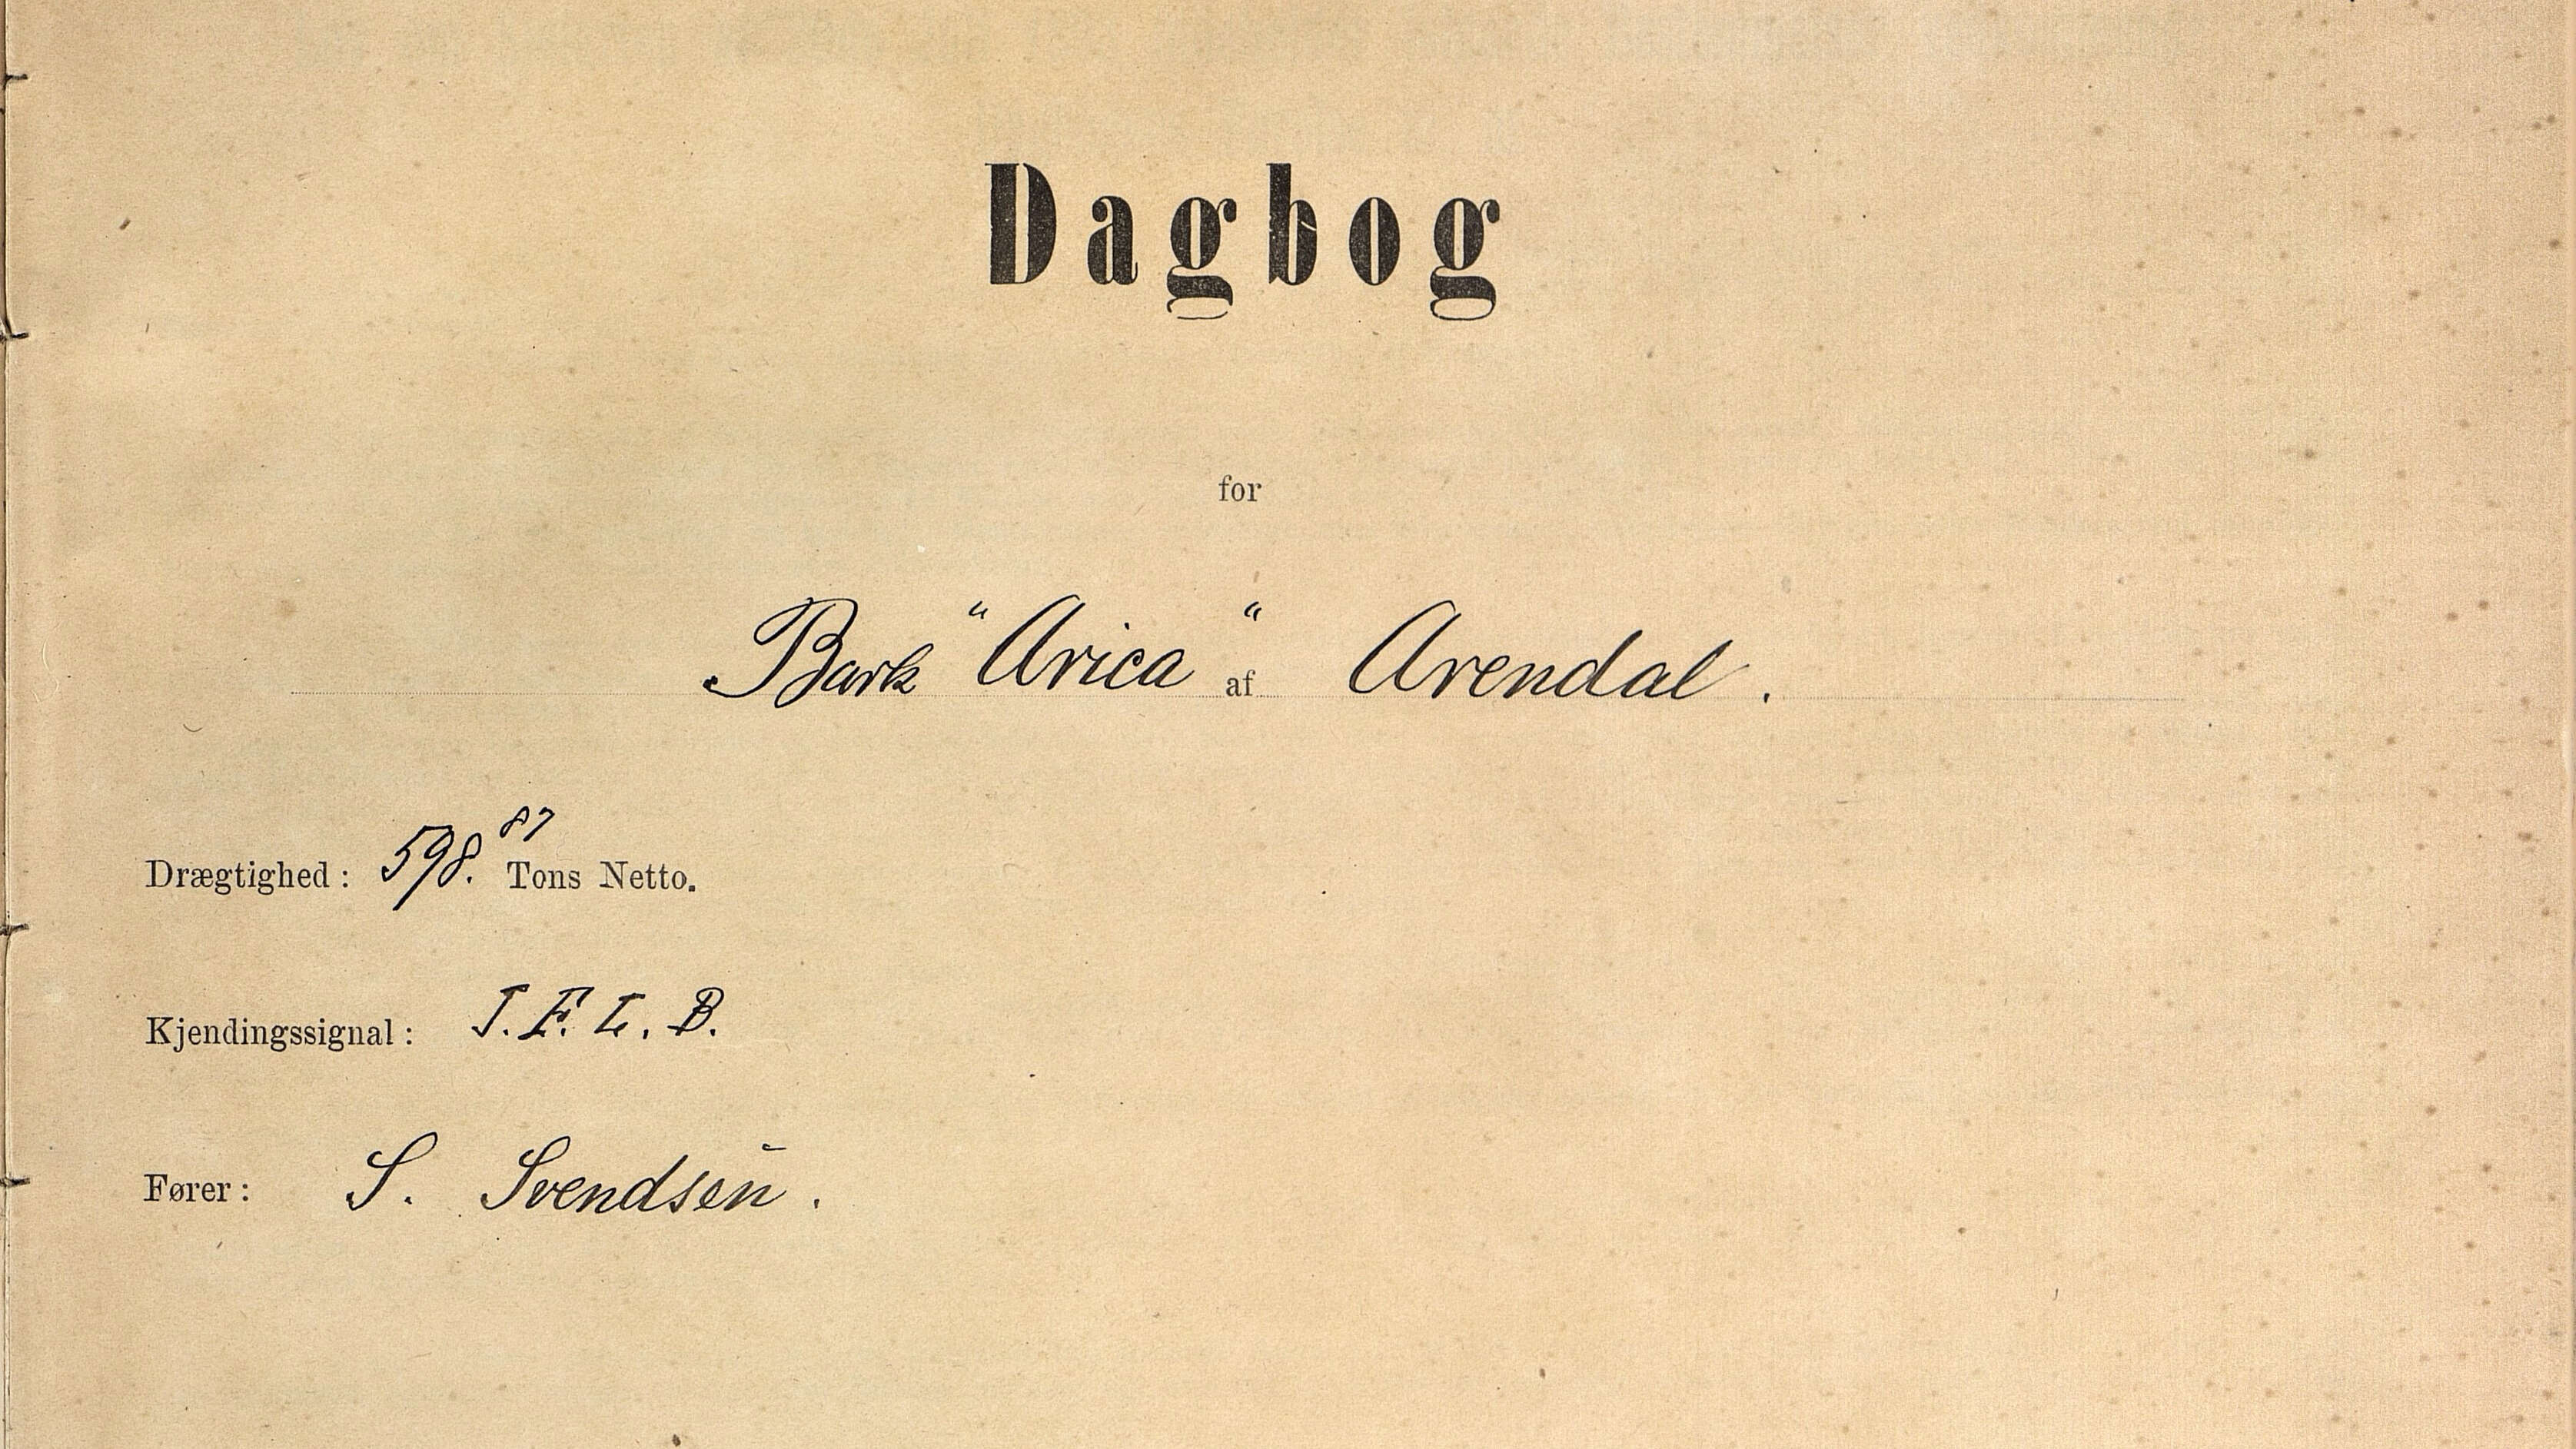 Dagbog
for
Bark "Arica" af Arendal.
Drægtighed: 598.87 Tons Netto.
Kjendingssignal: J. F. L. B.
Fører: S. Svendsen.